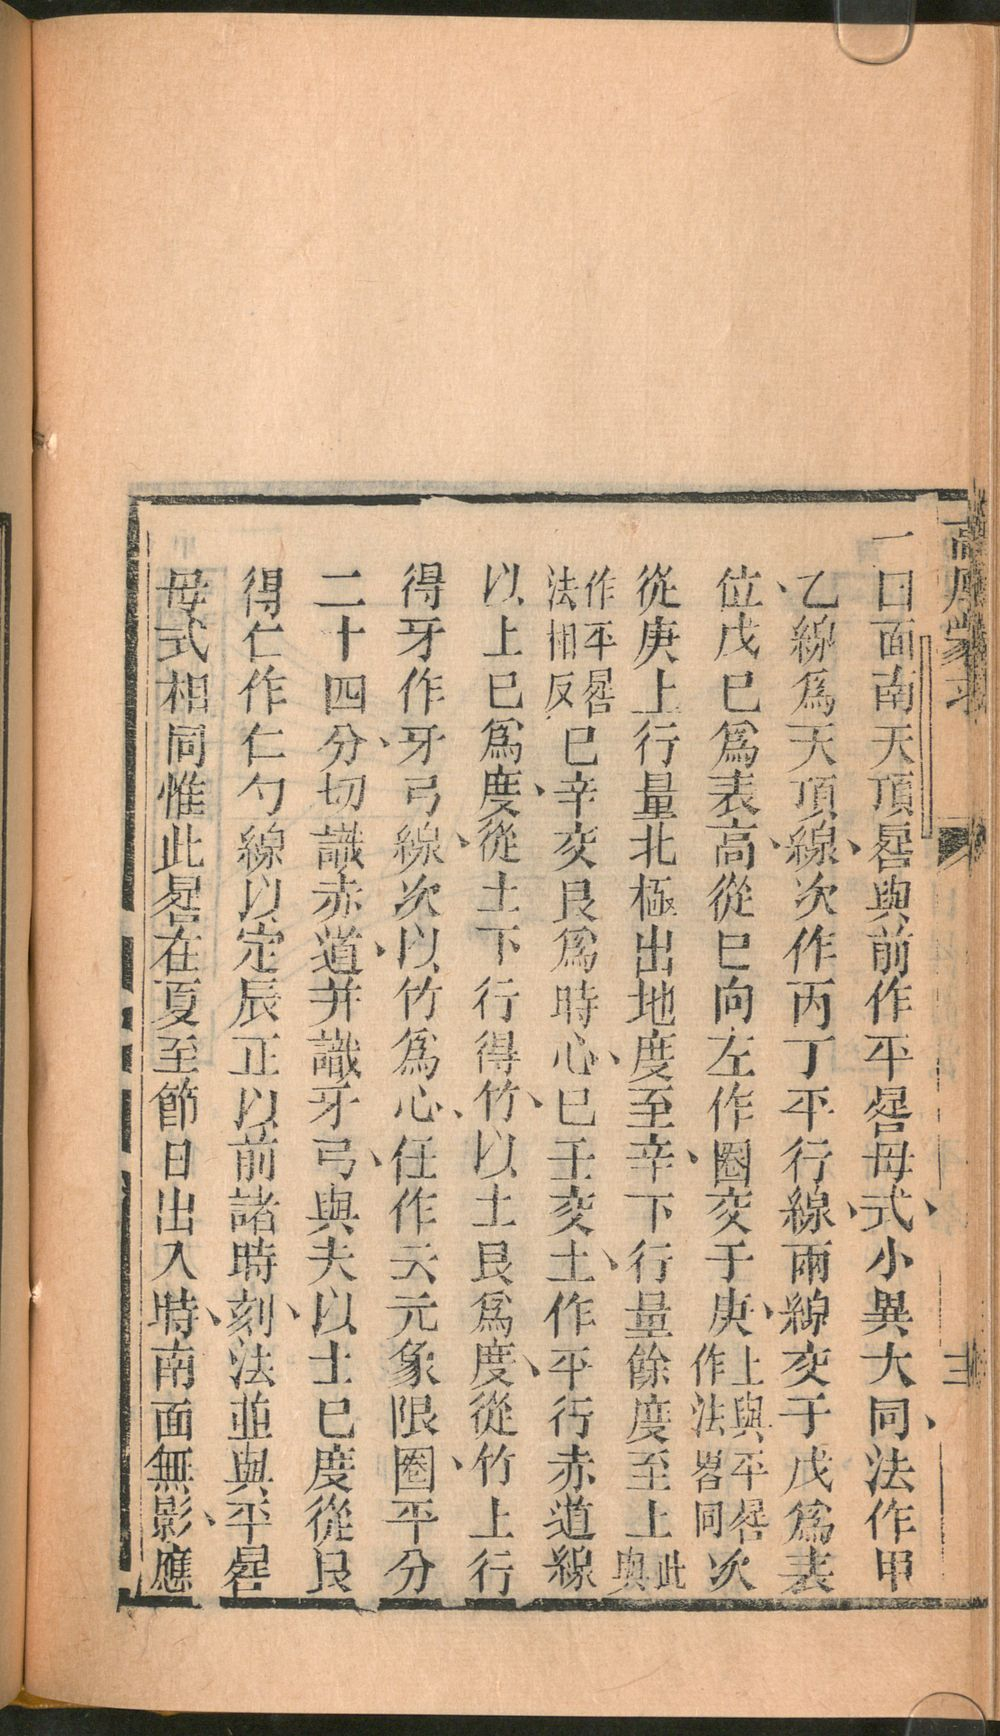 高厚蒙求
一曰面南天頂晷與前作平晷母式、小異大同、法作甲
乙線爲天頂線、次作丙丁平行線、兩線交于戊爲表
位、戊巳爲表高、從巳向左作圈交于庚、上與平晷作法畧同次
從庚上行量北極出地度至辛、下行量餘度至上此與
作平晷法相反巳辛交艮爲時心、巳壬交土、作平行赤道線
以上巳爲度、從土下行得竹、以土艮爲度、從竹上行
得牙作牙弓線、次以竹爲心、任作天元象限圈、平分
二十四分、切識赤道、并識牙弓、與夫以土巳度從艮
得仁作仁勺線以定辰正以前諸時刻、法並與平晷
母式相同惟此晷在夏至節日出入時、南面無影、應